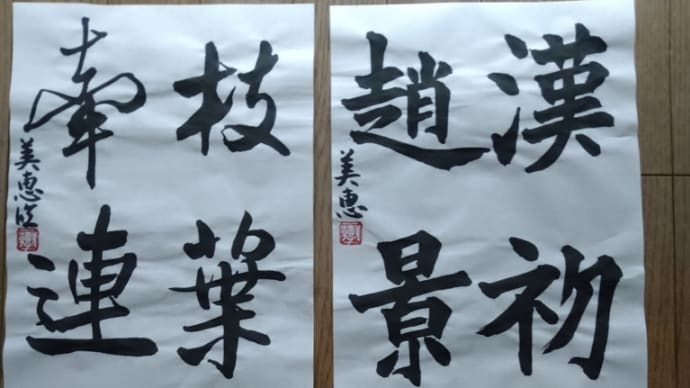 漢初
趙景
美恵
枝葉
牽連
美恵臨